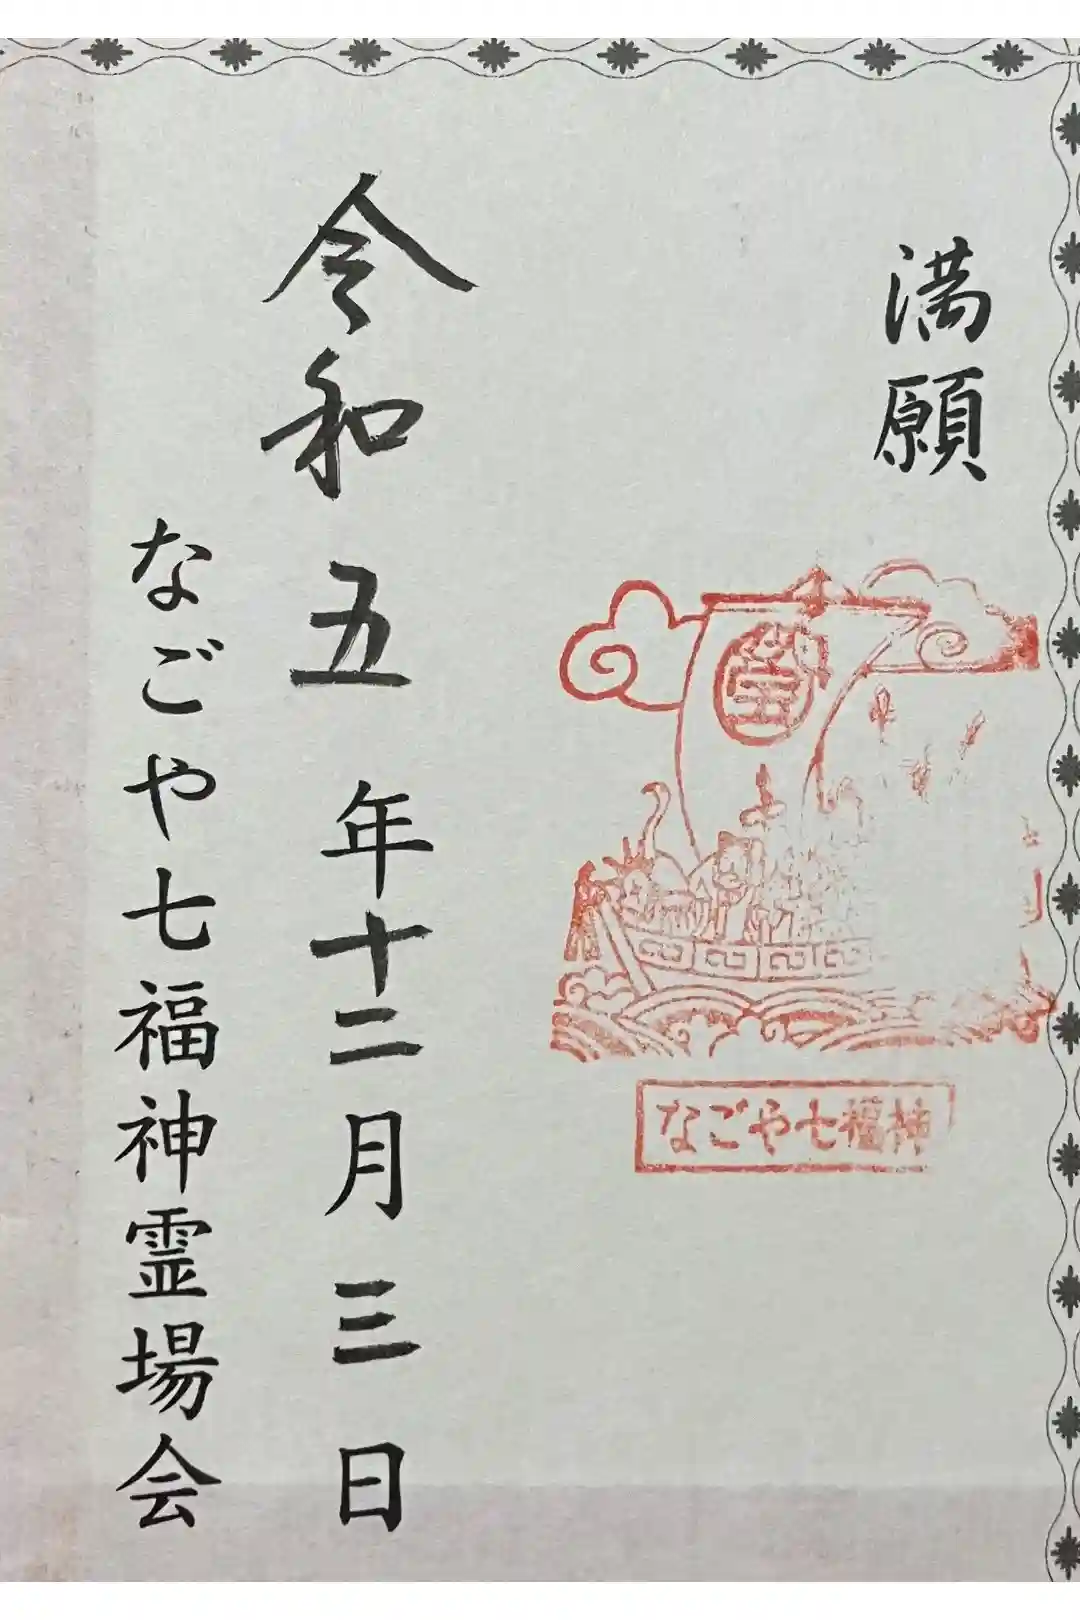 満願
宝
なごや七福神
令和五年十二月三日
なごや七福神霊場会